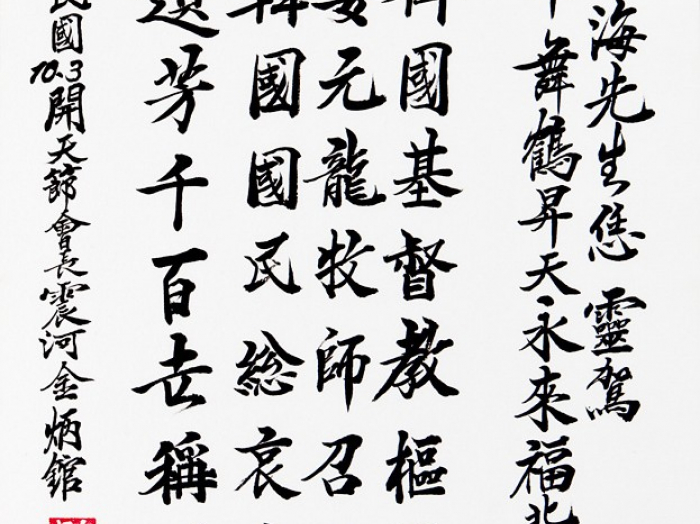 海先生恁 靈駕
舞鶴昇天永來福北
國基督教樞
元龍牧師召
韓國國民総哀
遺芳千百世稱
民國10.3開天節會長震河金炳錧